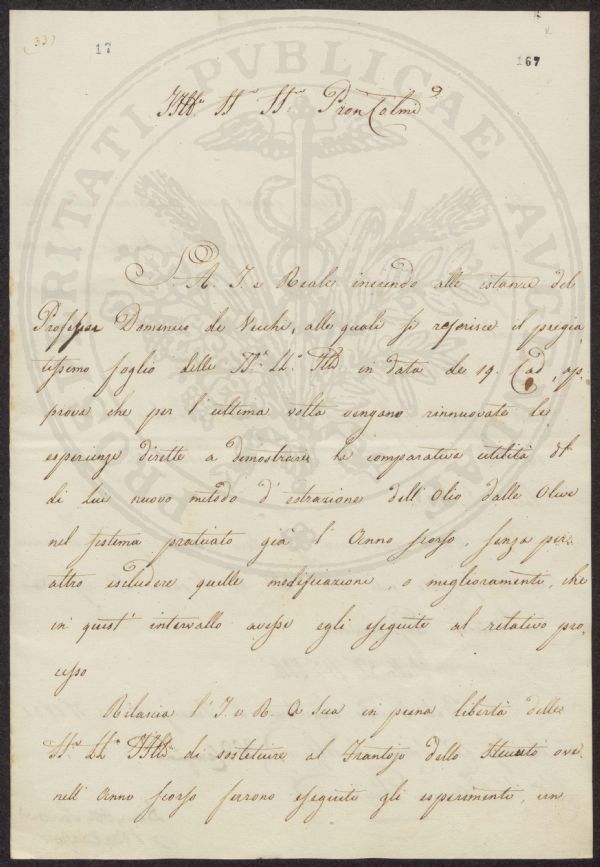 (33)
17
167
Ill.mi SS.ri SS.ri Pron Colmi
S. A. I. e Reale inerendo alle istanze del
Professor Domenico de Vecchi, alle quali si referisce il pregia
tissimo foglio delle SS.rie LL. Ill.me in data de 19. Cad., ap,
prova che per l'ultima volta vengano rinnuovate le
esperienze dirette a dimostrare la comparativa utilità del
di Lui nuovo metodo d'estrazione dell'Olio dalle Olive
nel sistema praticato già l'Anno scorso, senza per,
altro escludere quelle modificazioni, o miglioramenti, che
in quest'intervallo avesse egli eseguite al relativo pro,
cesso
Rilascia l'I. e R. A. Sua in piena libertà delle
SS.rie LL. Ill.me di sostituire al Frantojo dello Stecuto ove
nell'Anno scorso furono eseguite gli esperimenti, un
PROSPERITATI PUBLICAE AUGENDAE